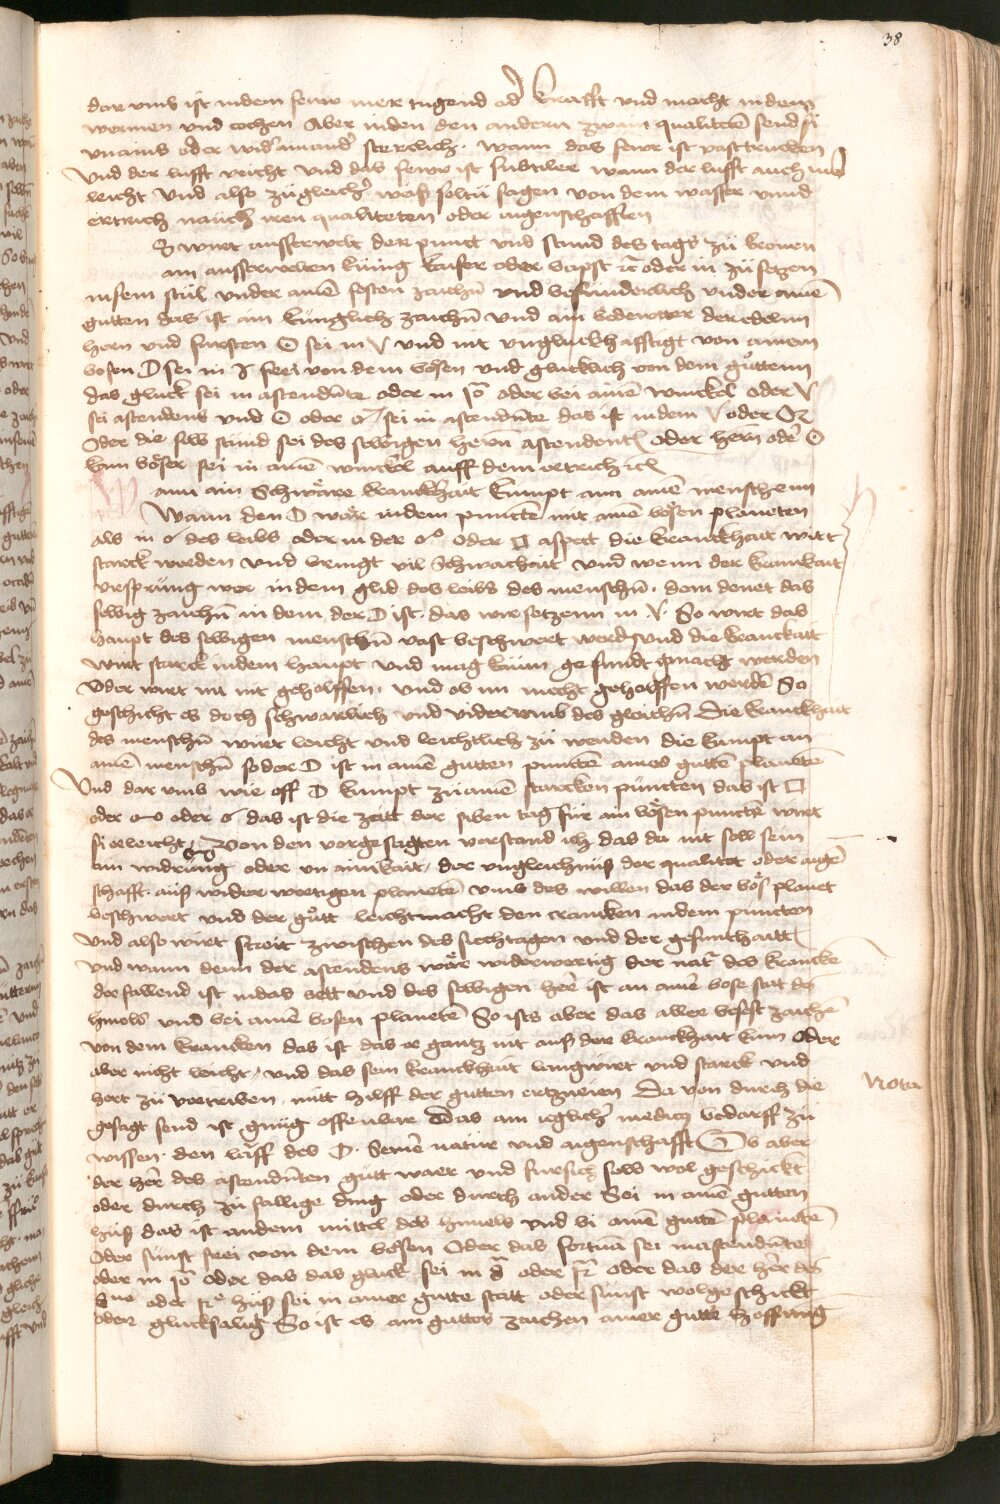 38
dar umb ist indem feuͤr mer tugend od' krafft und macht in dem
wermen und kochen Aber inden den andern zwain qualiteten send si
unains oder wid' ainand' sterclich. Wann das feur ist vast trucken
Und der lufft veicht Und das feuͤr ist subtiler wann der lufft auch
leicht Und also zuͤ gleich' weiß soltu sagen von dem wasser unnd
ertrich nauch iren qualiteten oder aigenschafften
S wirt ausserwelt der punct und stund des tags zuͤ kronen
ain ausserwelten kuͤnig kaiser oder bapst ꝛc oder in zuͤ setzen
in sein stuͤl under aim̄ festen zaichn̄ und besunderlich under aim̄
gutten das ist ain kuͤnglich zaichn̄ und ain bedeutter der edelnn
hern und fursten ☉ sei in ♈ und nit ungluckhafftigt von ainem
bosen ☽ sei in frei von dem boͤsen und glucklich von dem guͤttenn
das gluck sei in ascendente oder in 10 oder bei ainē winckel oder ♈
sei ascendens und ☉ oder ♂ sei in ascendente das ist in dem ♈ oder ♌
Oder die selb stund sei des selbigen hern ascendent oder hern oder ☉
kain boͤser sei in ainē winckel auff dem ertrich ꝛc
ann ain Schwaͤre kranckhait kumpt ain ainē menschenn
Wann den ☽ waͤr indem puncten mit ainē boͤsen planeten
als in ☌ des leibs oder in der ☍ oder □ aspect die kranckhait wirt
starck werden und bringt vil Schwachait und wenn der kranckait
ursprung wer indem glid des leibs des menschn̄. dem deuet das
selbig zaichn̄ in dem der ☽ ist. das wir setzenn in ♈. So wirt das
haupt des selbigen menschn̄ vast beschwert werd' und die kranckait
wirt starck indem haupt und mag kaum gesundt gmacht werden
Oder wirt im nit geholffen. und ob im mecht geholffen werdē So
geschicht es doch schwarlich und widerumb des gleichn̄ Die kranckhait
des menschn̄ wirt leicht und leichtlich zuͤ wenden die kumpt an
ainē menschn̄ so der ☽ ist in ainē gutten puncten aines guttē planetē
Und dar umb wie offt ☽ kumpt zuͤ ainē starcken puncten das ist □
oder ☍ oder ☌ das ist die zeitt der siben tag für ain boͤsen punctē wirt
si erleicht. Von den vorgesagten verstand ich das da nit soll sein
ain widrung oder un ainikait, der ungleichnuß der qualitet oder aigē
schafft. auß wider wertigen planetē umb des willen das der boͤs planet
beschwert und der guͤtt leicht macht den krancken indem puncten
und also wirt streit zwischen des siechtagen und der gesunthaitt
und wann denn der ascendens waͤr widerwertig der nat' des krancke
der fallend ist in das bett und des selbigen herr ist an ainer bose stat des
himels und bei ainē bosen planetē So ists aber das aller boͤsest zaichē
von dem krancken das ist das er gantz nit auß der kranckhait kum Oder
aber nicht leicht, und das sein kranckhait langwirt und starck und
hert zuͤ vertriben. mitt hilff der gutten ertzneien Da von durch die
gesagt send ist gnuͤg offenbar Das ain ieglich' medicus bedarff zuͤ
wissen. den lauff des ☽. Seinē natur und aigenschafft Ob aber
der herr des ascendenten guͤtt waer und fursich selbs wol geschickt
oder durch zuͤ fallige ding oder durch ander Sei in ainē gutten
huß das ist andem mittel des himels und bi ainē guttē planetē
Oder sunst frei von dem boͤsen Oder das fortuna sei in ascendente
oder in 10 oder das das gluck sei in oder oder das der herr des
oder huß sei in ainer gutte statt oder sunst wolgeschickt
oder glucksalig So ist es ain guttes zaichen ainer gutte hoffnung
Nota